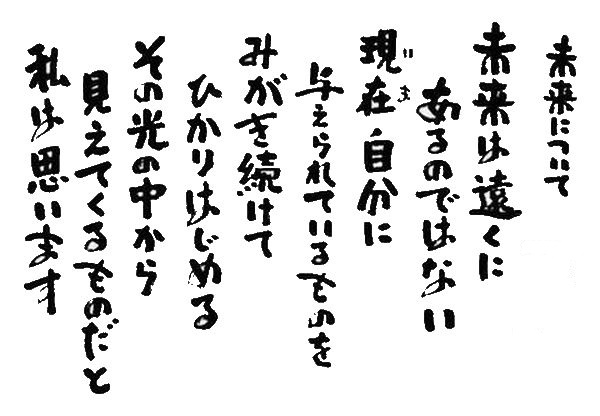 未来について
未来は遠くに
あるのではない
現在、自分に
与えられているものを
みがき続けて
ひかりはじめる
その光の中から
見えてくるものだと
私は思います